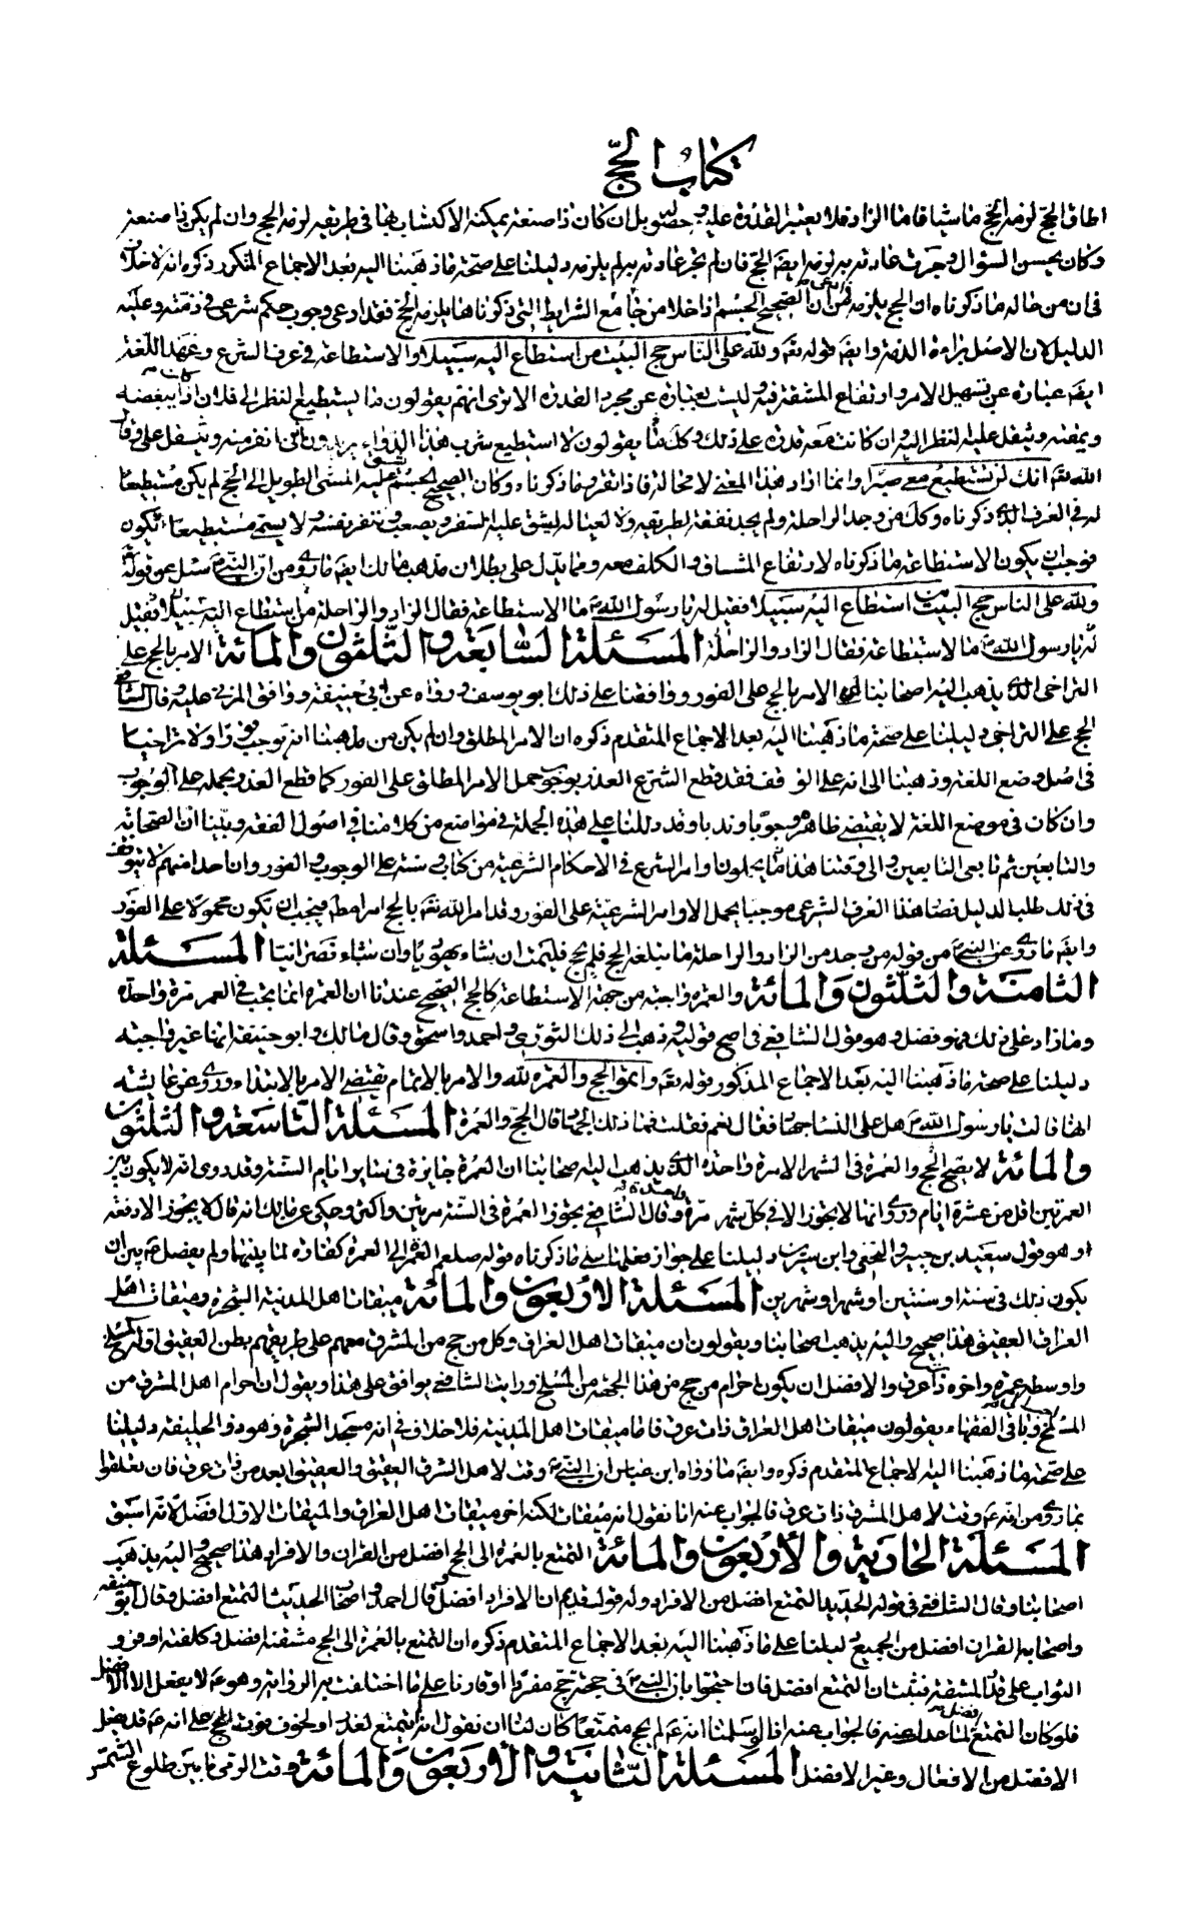 كتاب الحج
اطاق الحج لزمه الحج ماشيا فاما الزاد فلا يعتبر القدرة عليه وحضوره بل ان كان ذا صنعة يمكنه الاكتساب بها في طريقه لزمه الحج وان لم يكن ذا صنعة
وكان يحسن السؤال وجرت عادته به لزمه ايضا الحج فان لم تجر عادته به لم يلزمه دليلنا على صحة ما ذهبنا اليه بعد الاجماع المتكرر ذكره انه لا خلاف
في ان من حاله ما ذكرناه ان الحج يلزمه فمن ادعى ان الصحيح الجسم اذا خلا من جامع الشرايط التي ذكرناها يلزمه الحج فقد ادعى وجوب حكم شرعي في ذمته وعليه
الدليل لان الاصل براءة الذمة وايضا قوله تعالى ولله على الناس حج البيت من استطاع اليه سبيلا والاستطاعة في عرف الشرع وعهد اللغة
ايضا عبارة عن تسهيل الامر وارتفاع المشقة فيه وليست بعبارة عن مجرد القدرة الا ترى انهم يقولون ما استطيع النظر الى فلان اذا كان يبغضه
ويمقته ويثقل عليه النظر اليه وان كانت معه قدرة على ذلك وكذلك يقولون لا استطيع شرب هذا الدواء يريدون انني انفر منه ويثقل علي وقال
الله تعالى انك لن تستطيع معي صبرا وانما اراد هذا المعنى لا محالة فاذا تقرر ما ذكرناه وكان الصحيح الجسم يشق عليه المشي الطويل الى الحج لم يكن مستطيعا
له في العرف الذي ذكرناه وكذلك من وجد الراحلة ولم يجد نفقة لطريقه ولا لعياله يشق عليه السفر ويصعب وتنفر نفسه ولا يسمى مستطيعا
فوجب ان يكون الاستطاعة ما ذكرناه لارتفاع المشاق والكلف معه ومما يدل على بطلان مذهب مالك ايضا ما روي من ان النبي سئل عن قوله
ولله على الناس حج البيت من استطاع اليه سبيلا فقيل له يا رسول الله ما الاستطاعة فقال الزاد والراحلة من استطاع اليه سبيلا فقيل
له يا رسول الله ما الاستطاعة فقال الزاد والراحلة المسئلة السابعة والثلثون والمائة الامر بالحج على
التراخي الذي يذهب اليه اصحابنا ان الامر بالحج على الفور ووافقنا على ذلك ابو يوسف ورواه عن ابي حنيفة ووافق المزني عليه وقال الشافعي
الحج على التراخي دليلنا على صحة ما ذهبنا اليه بعد الاجماع المتقدم ذكره ان الامر المطلق وان لم يكن من مذهبنا انه توجب فورا ولا تراخيا
في اصل وضع اللغة وذهبنا الى انه على الوقف فقد قطع الشرع العذر بوجوب حمل الامر المطلق على الفور كما قطع العذر بحمله على الوجوب
وان كان في موضع اللغة لا يقتضي ظاهره وجوبا وندبا وقد دللنا على هذه الجملة في مواضع من كلامنا في اصول الفقه وبينا ان الصحابة
والتابعين ثم تابعي التابعين والى وقتنا هذا ما يحملون اوامر الشرع في الاحكام الشرعية من كتاب وسنة على الوجوب والفور وان احدا منهم لا يتوقف
في ذلك طلبا لدليل فصار هذا العرف الشرعي موجبا بحمل الاوامر الشرعية على الفور وقد امر الله تعالى بالحج امرا مطلقا فيجب ان يكون محمولا على الفور
وايضا ما روي عن النبي من قوله من وجد من الزاد والراحلة ما يبلغه الحج فلم يحج فليمت ان شاء يهوديا وان شاء نصرانيا المسئلة
الثامنة والثلثون والمائة والعمرة واجبة من جهة الاستطاعة كالحج الصحيح عندنا ان العمرة انما يجب في العمر مرة واحدة
وما زاد على ذلك فهو فضل وهو قول الشافعي في اصح قوليه وذهب الى ذلك الثوري واحمد واسحق وقال مالك وابو حنيفة انها غير واجبة
دليلنا على صحة ما ذهبنا اليه بعد الاجماع المذكور قوله تعالى واتموا الحج والعمرة لله والامر بالاتمام يقتضي الامر بالابتداء وروي عن عايشة
انها قالت يا رسول الله هل على النساء جهاد فقال نعم فقلت فما ذلك الجهاد قال الحج والعمرة المسئلة التاسعة والثلثون
والمائة لا يصح الحج والعمرة في الشهر الا مرة واحدة الذي يذهب اليه اصحابنا ان العمرة جايزة في ساير ايام السنة وقد روي انه لا يكون بين
العمرتين اقل من عشرة ايام وروي انها لا يجوز الا في كل شهر مرة واحدة وقال الشافعي يجوز العمرة في السنة مرتين واكثر وحكي عن مالك انه قال لا يجوز الا دفعة
وهو قول سعيد بن جبير والنخعي وابن سيرين دليلنا على جواز فعلها على ما ذكرناه قوله صلعم العمرة الى العمرة كفارة لما بينهما ولم يفصل بين ان
يكون ذلك في سنة او سنتين او شهر او شهرين المسئلة الاربعون والمائة ميقات اهل المدينة الشجرة وميقات اهل
العراق العقيق هذا صحيح واليه يذهب اصحابنا ويقولون ان ميقات اهل العراق وكل من حج من المشرق معهم على طريقهم بطن العقيق اوله المسلخ
واوسطه غمرة واخره ذات عرق والافضل ان يكون احرام من حج من هذا الجهة من المسلخ ورايت الشافعي يوافق على هذا ويقول ان احرام اهل المشرق من
المسلخ وباقي الفقهاء يقولون ميقات اهل العراق ذات عرق فاما ميقات اهل المدينة فلا خلاف في انه مسجد الشجرة وهو ذو الحليفة دليلنا
على صحة ما ذهبنا اليه الاجماع المتقدم ذكره وايضا ما رواه ابن عباس ان النبي وقت لاهل الشرق العقيق والعقيق ابعد من ذات عرق فان تعلقوا
بما روي من انه وقت لاهل المشرق ذات عرق فالجواب عنه انا نقول انه ميقات لكنه اخر ميقات اهل العراق والميقات الاول افضل لانه اسبق
المسئلة الحادية والاربعون والمائة التمتع بالعمرة الى الحج افضل من القران والافراد هذا صحيح واليه يذهب
اصحابنا وقال الشافعي في قوله الجديد التمتع افضل من الافراد وله قول قديم ان الافراد افضل وقال احمد واصحاب الحديث التمتع افضل وقال ابو حنيفة
واصحابه القران افضل من الجميع دليلنا على ما ذهبنا اليه بعد الاجماع المتقدم ذكره ان التمتع بالعمرة الى الحج مشقته افضل وكلفته اوفر و
الثواب على قدر المشقة فثبت ان التمتع افضل فان احتجوا بان النبي في حجته حج مفردا او قارنا على ما اختلفت به الرواية وهو لا يفعل الا الافضل
فلو كان التمتع افضل لما عدل عنه فالجواب عنه اذا سلمنا انه لم يحج متمتعا كان لنا ان نقول انه لم يتمتع لعذر او لخوف فوت الحج على انه قد يفعل
الافضل من الافعال وغير الافضل المسئلة الثانية والاربعون والمائة وقت الرمي ما بين طلوع الشمس